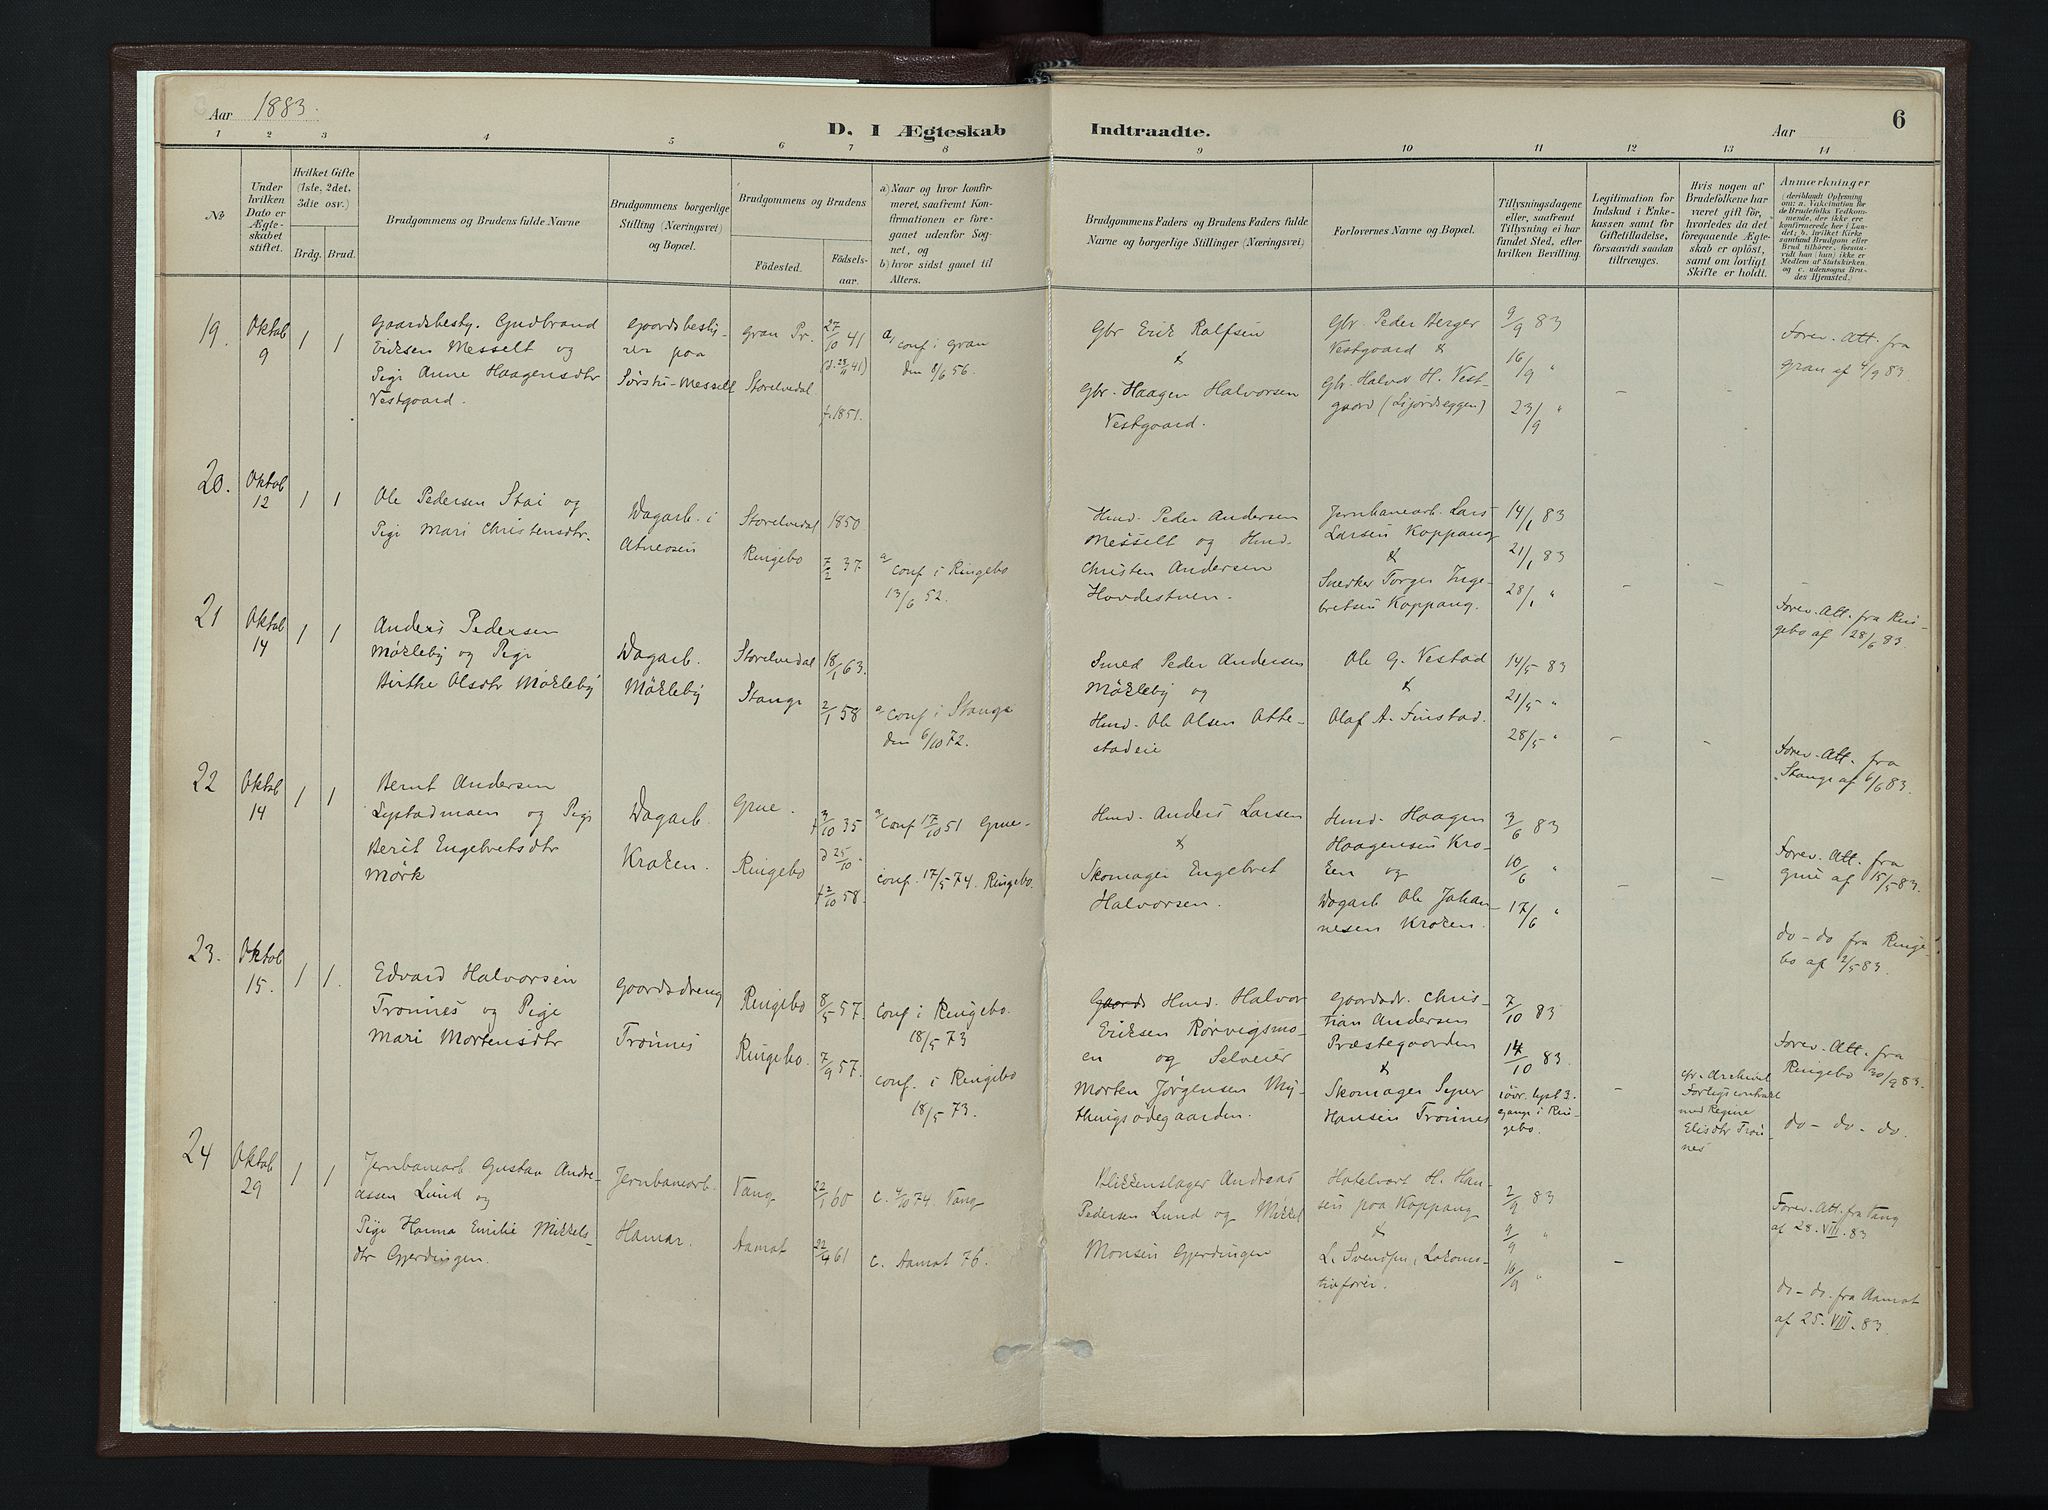 Aar 1883.
D. I Ægteskab Indtraadte.
Aar
6
1 2 3 4 5 6 7 8 9 10 11 12 13 14
No
Under hvilken Dato er Ægteskabet stiftet.
Hvilket Gifte (1ste, 2det, 3die osv.)
Brdg. Brud.
Brudgommens og Brudens fulde Navne
Brudgommens borgerlige Stilling (Næringsvei) og Bopæl.
Brudgommens og Brudens
Födested.
Födselsaar.
a) Naar og hvor konfirmeret, saafremt Konfirmationen er foregaaet udenfor Sognet, og
b) hvor sidst gaaet til Alters.
Brudgommens Faders og Brudens Faders fulde Navne og borgerlige Stillinger (Næringsvei)
Forlovernes Navne og Bopæl.
Tillysningsdagene eller, saafremt Tillysning ei har fundet Sted, efter hvilken Bevilling.
Legitimation for Indskud i Enkekassen samt for Giftetilladelse, forsaavidt saadan tiltrænges.
Hvis nogen af Brudefolkene har været gift för, hvorledes da det foregaaende Ægteskab er oplöst, samt om lovligt Skifte er holdt.
Anmærkninger
(deriblandt Oplysning om: a. Vakcination for de Brudefolks Vedkommende, der ikke ere konfirmerede her i Landet; b. hvilket Kirkesamfund Brudgom eller Brud tilhører, forsaavidt han (hun) ikke er Medlem af Statskirken og c. udensogns Brudes Hjemsted.)
19.
Oktob
9
1 1
Gaardsbesty. Gudbrand
Eriksen Messelt og
Pige Anne Haagensdtr
Vestgaard.
Gaardsbesty-
rer paa
Messelt
Gran Pr.
Storelvedal
27/10 41
f. 1851.
a, conf. i Gran
den 8/6 56.
Gbr Erik Ralfsen
&
Gbr. Haagen Halvorsen
Vestgaard.
Gbr. Peder Berger
Vestgaard &
Gbr. Halvor H. Vest-
gaard
9/9 83
16/9 "
23/9 "
-
-
Forev. Att. fra
Gran af 4/9 83.
20.
Oktob
12
1 1
Ole Pedersen Stai og
Pige Mari Christensdtr.
Dagarb. i
Atneosen
Storelvedal
Ringebo
1850
7/2 37.
a, conf. i Ringebo
13/6 52.
Hmd. Peder Andersen
Messelt og Hmd.
Christen Andersen
Hovdestuen.
Jernbanearb. Lars
Larsen Koppang
&
Snedker Torger Inge-
bretsen Koppang.
14/1 83
21/1 83
28/1 "
-
-
Forev. Att. fra Rin-
gebo af 28/6 83.
21
Oktob
14
1 1
Anders Pedersen
Møkleby og Pige
Birthe Olsdtr Møkleby
Dagarb.
Møkleby
Storelvedal
Stange
18/1 63.
2/1 58
a, conf. i Stange
den 6/10 72.
Smed Peder Andersen
Møkleby og
Hmd. Ole Olsen Atte-
stadeie
Ole G. Vestad
&
Olaf A. Finstad.
14/5 83
21/5 "
28/5 "
-
-
Forev. Att. fra
Stange af 6/6 83.
22
Oktob
14
1 1
Bernt Andersen
og Pige
Berit Engebretsdtr
Mørk
Dagarb.
Kroken.
Grue.
Ringebo
f 3/10 35
d 25/10 "
f 2/10 58.
a, conf 17/10 51 Grue.
conf. 17/5 74. Ringebo.
Hmd. Anders Larsen
&
Skomager Engebret
Halvorsen.
Hmd. Haagen
Haagensen Kro-
ken og
Dagarb Ole Johan-
nesen Kroken.
3/6 83
10/6 "
17/6 "
-
-
Forev. Att. fra
Grue af 15/5 83.
do - do fra Ringe-
bo af 2/5 83.
23.
Oktob
15.
1 1.
Edvard Halvorsen
Trønnes og Pige
Mari Mortensdtr
Gaardsdreng
Trønnes
Ringebo
Ringebo.
8/5 57.
7/9 57.
conf i Ringebo.
18/5 73
conf. i Ringebo
18/5 73.
Gaards Hmd. Halvor
Eriksen Rørvigsmo-
en og Selveier
Morten Jørgensen My-
thingsødegaarden.
Gaardsdr. Chris-
tian Andersen
Præstegaarden
&
Skomager Syver
Hansen Trønnes
7/10 83
14/10 83.
iøvr. lyst 3
gange i Rin-
gebo.
-
cfr. Archivet
Forligscontract
med Regine
Elisdtr Trøn-
nes
Forev. Att. fra
Ringebo 30/9 83.
do - do - do.
24
Oktob
29
1 1
Jernbanearb Gustav Andre-
assen Lund og
Pige Hanna Emilie Mikkels-
dtr Gjerdingen.
Jernbanearb.
Hamar.
Vang
Aamot
22/1 60
22/4 61
c. 4/10 74 Vang
c. Aamot 76.
Blikkenslager Andreas
Pedersen Lund og Mikkel
Monsen Gjerdingen
Hotelvært H. Han-
sen paa Koppang
&
L. Svendsen, Lokomo-
tivfører.
2/9 83
9/9 "
16/9 "
-
Forev. Att. fra Vang
af 28. VIII. 83
do - do. fra Aamot
af 25. VIII. 83.